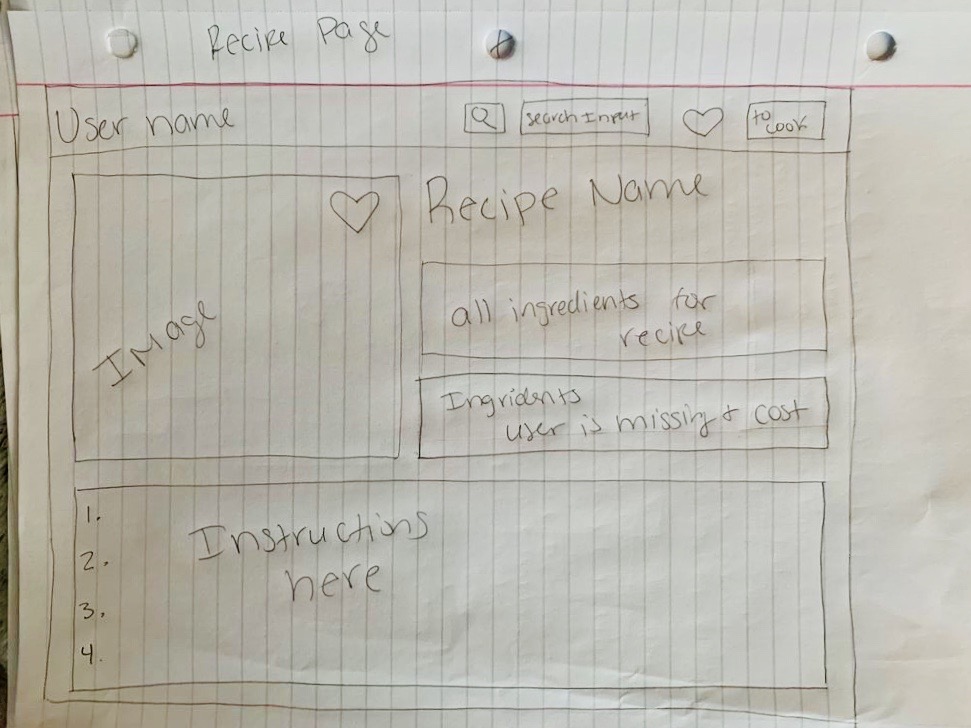 Recipe Page
User name
Search Input
to
cook
Recipe Name
Image
all ingredients for
recipe
Ingridents
user is missing & cost
1.
2.
3.
4.
Instructions
here